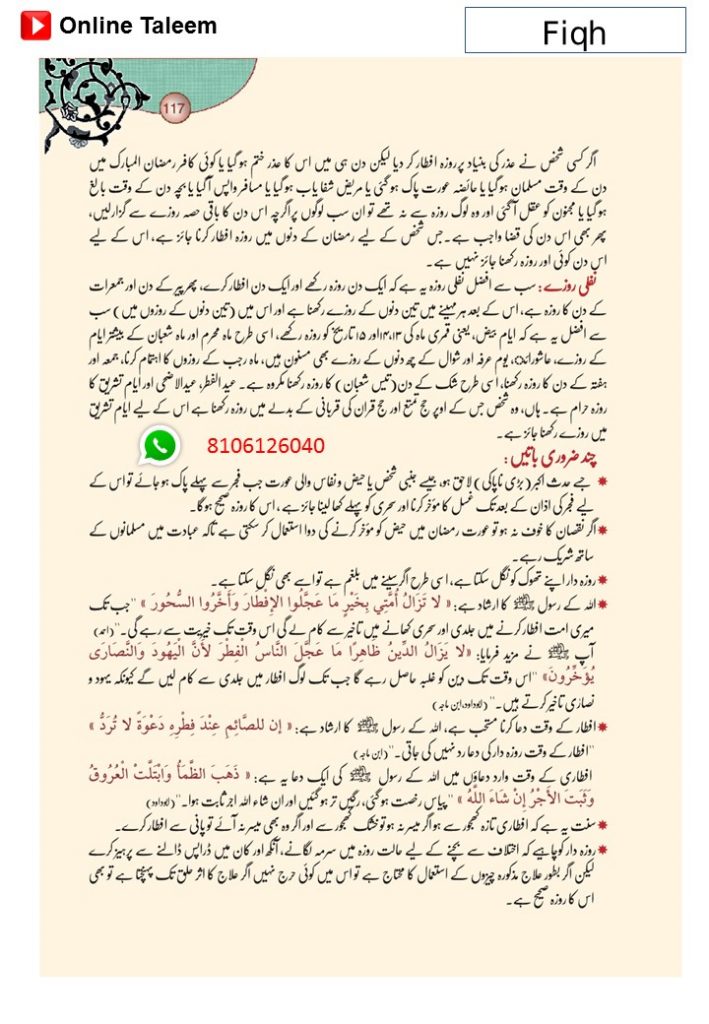 Online Taleem
Fiqh
117
اگر کسی شخص نے عذر کی بنیاد پر روزہ افطار کر دیا لیکن دن ہی میں اس کا عذر ختم ہو گیا یا کوئی کافر رمضان المبارک میں
دن کے وقت مسلمان ہو گیا یا حائضہ عورت پاک ہو گئی یا مریض شفا یاب ہو گیا یا مسافر واپس آ گیا یا بچہ دن کے وقت بالغ
ہو گیا یا مجنون کو عقل آ گئی اور وہ لوگ روزہ سے نہ تھے تو ان سب لوگوں پر اگرچہ اس دن کا باقی حصہ روزے سے گزارلیں،
پھر بھی اس دن کی قضا واجب ہے۔ جس شخص کے لیے رمضان کے دنوں میں روزہ افطار کرنا جائز ہے، اس کے لیے
اس دن کوئی اور روزہ رکھنا جائز نہیں ہے۔
نفلی روزے: سب سے افضل نفلی روزہ یہ ہے کہ ایک دن روزہ رکھے اور ایک دن افطار کرے، پھر پیر کے دن اور جمعرات
کے دن کا روزہ ہے، اس کے بعد ہر مہینے میں تین دنوں کے روزے رکھنا ہے اور اس میں (تین دنوں کے روزوں میں) سب
سے افضل یہ ہے کہ ایام بیض، یعنی قمری ماہ کی ۱۳،۱۴ اور ۱۵ تاریخ کو روزہ رکھے، اسی طرح ماہ محرم اور ماہ شعبان کے بیشتر ایام
کے روزے، عاشوراء، یوم عرفہ اور شوال کے چھ دنوں کے روزے بھی مسنون ہیں، ماہ رجب کے روزوں کا اہتمام کرنا، جمعہ اور
ہفتہ کے دن کا روزہ رکھنا، اسی طرح شک کے دن (تیس شعبان) کا روزہ رکھنا مکروہ ہے۔ عید الفطر، عید الاضحی اور ایام تشریق کا
روزہ حرام ہے۔ ہاں، وہ شخص جس کے اوپر حج تمتع اور حج قران کی قربانی کے بدلے میں روزہ رکھنا ہے اس کے لیے ایام تشریق
میں روزے رکھنا جائز ہے۔
8106126040
چند ضروری باتیں:
✷ جسے حدث اکبر (بڑی ناپاکی) لاحق ہو، جیسے جنبی شخص یا حیض و نفاس والی عورت جب فجر سے پہلے پاک ہو جائے تو اس کے
لیے فجر کی اذان کے بعد تک غسل کا مؤخر کرنا اور سحری کو پہلے کھا لینا جائز ہے، اس کا روزہ صحیح ہوگا۔
✷ اگر نقصان کا خوف نہ ہو تو عورت رمضان میں حیض کو مؤخر کرنے کی دوا استعمال کر سکتی ہے تاکہ عبادت میں مسلمانوں کے
ساتھ شریک رہے۔
✷ روزہ دار اپنے تھوک کو نگل سکتا ہے، اسی طرح اگر سینے میں بلغم ہے تو اسے بھی نگل سکتا ہے۔
✷ اللہ کے رسول ﷺ کا ارشاد ہے: « لَا تَزَالُ أُمَّتِي بِخَيْرٍ مَا عَجَّلُوا الإِفْطَارَ وَأَخَّرُوا السُّحُورَ » "جب تک
میری امت افطار کرنے میں جلدی اور سحری کھانے میں تاخیر سے کام لے گی اس وقت تک خیریت سے رہے گی۔" (احمد)
آپ ﷺ نے مزید فرمایا: «لا يَزَالُ الدِّينُ ظَاهِرًا مَا عَجَّلَ النَّاسُ الْفِطْرَ لأَنَّ الْيَهُودَ وَالنَّصَارَى
يُؤَخِّرُونَ» "اس وقت تک دین کو غلبہ حاصل رہے گا جب تک لوگ افطار میں جلدی سے کام لیں گے کیونکہ یہود و
نصاری تاخیر کرتے ہیں۔" (ابوداود، ابن ماجہ)
✷ افطار کے وقت دعا کرنا مستحب ہے، اللہ کے رسول ﷺ کا ارشاد ہے: « إن للصَّائِمِ عِنْدَ فِطْرِهِ دَعْوَةً لا تُرَدُّ »
"افطار کے وقت روزہ دار کی دعا رد نہیں کی جاتی۔" (ابن ماجہ)
افطاری کے وقت وارد دعاؤں میں اللہ کے رسول ﷺ کی ایک دعا یہ ہے: « ذَهَبَ الظَّمَأُ وَابْتَلَّتْ الْعُرُوقُ
وَثَبَتَ الأَجْرُ إِنْ شَاءَ اللَّهُ » "پیاس رخصت ہو گئی، رگیں تر ہو گئیں اور ان شاء اللہ اجر ثابت ہوا۔" (ابوداود)
✷ سنت یہ ہے کہ افطاری تازہ کھجور سے ہو اگر میسر نہ ہو تو خشک کھجور سے اور اگر وہ بھی میسر نہ آئے تو پانی سے افطار کرے۔
✷ روزہ دار کو چاہیے کہ اختلاف سے بچنے کے لیے حالت روزہ میں سرمہ لگانے، آنکھ اور کان میں ڈراپس ڈالنے سے پرہیز کرے
لیکن اگر بطور علاج مذکورہ چیزوں کے استعمال کا محتاج ہے تو اس میں کوئی حرج نہیں اگر علاج کا اثر حلق تک پہنچتا ہے تو بھی
اس کا روزہ صحیح ہے۔